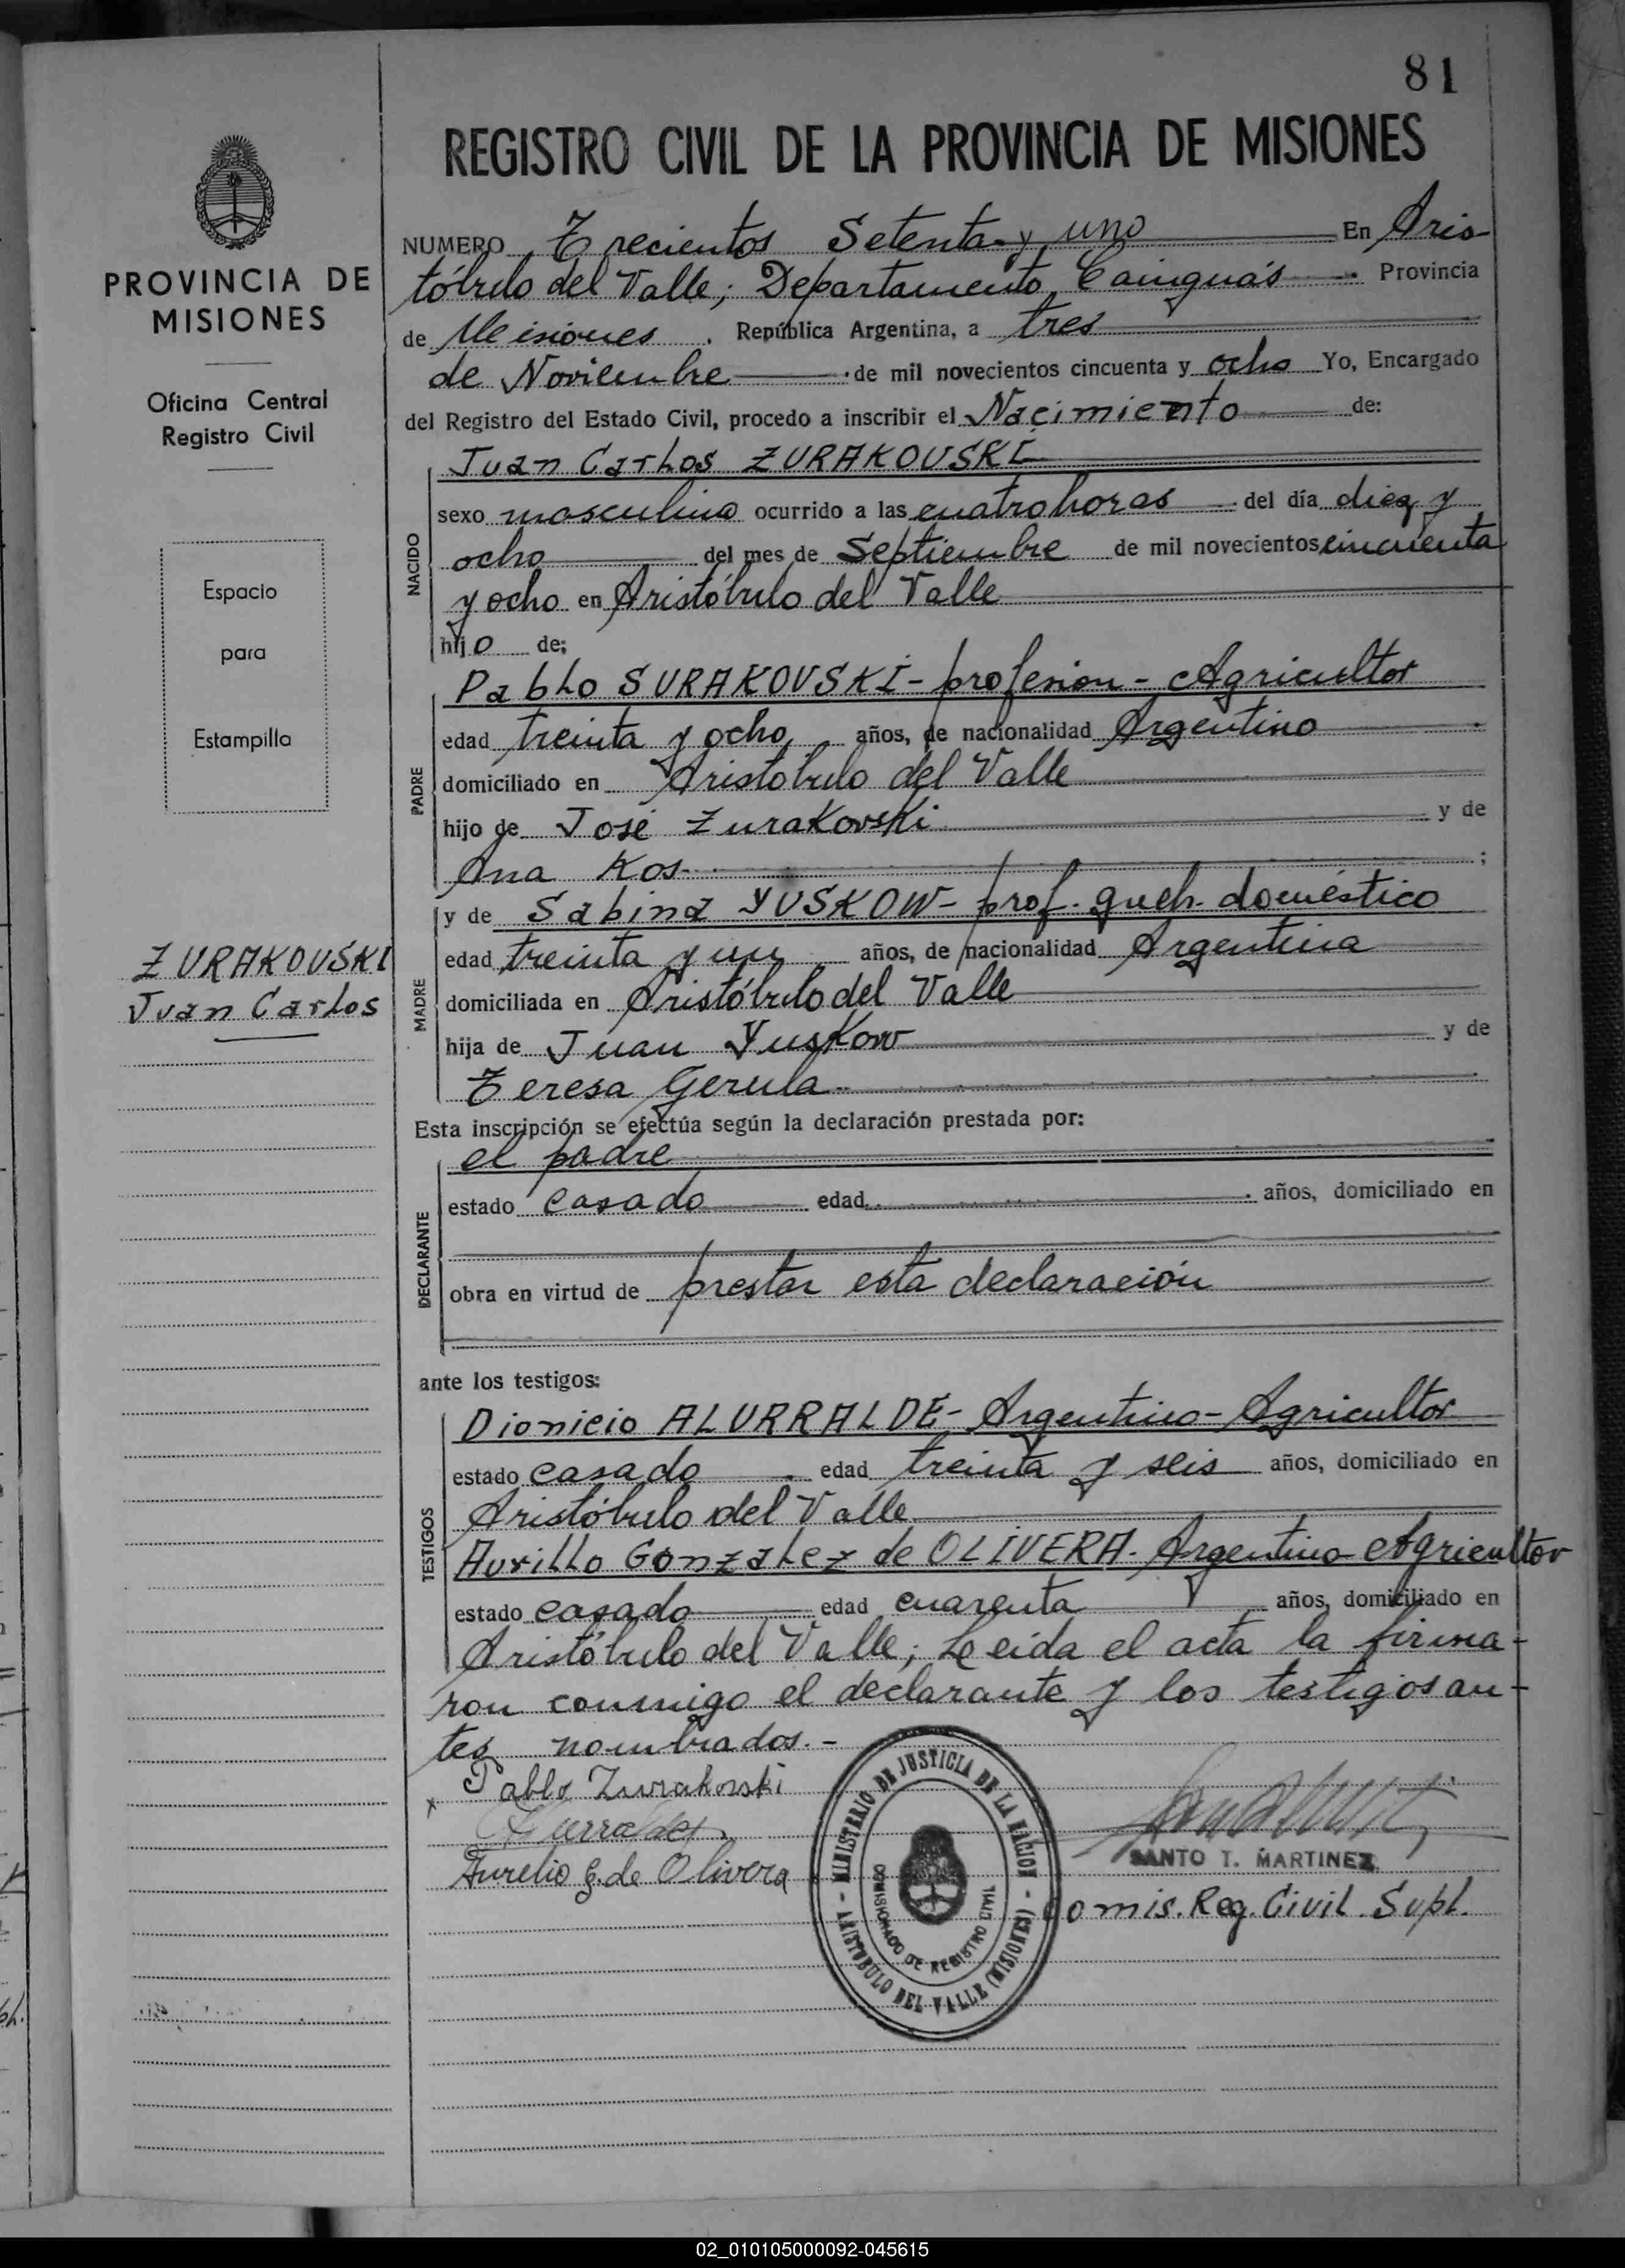 81
REGISTRO CIVIL DE LA PROVINCIA DE MISIONES
PROVINCIA DE
MISIONES
Oficina Central
Registro Civil
Espacio
para
Estampilla
ZURAKOUSKI
Juan Carlos
NUMERO Trecientos Setenta y uno En Aris-
tóbulo del Valle; Departamento Cainguás Provincia
de Misiones. República Argentina, a tres
de Noviembre de mil novecientos cincuenta y ocho Yo, Encargado
del Registro del Estado Civil, procedo a inscribir el Nacimiento de:
NACIDO
Juan Carlos ZURAKOUSKI
sexo masculino ocurrido a las cuatro horas del día diez y
ocho del mes de Septiembre de mil novecientos cincuenta
y ocho en Aristóbulo del Valle
hijo de;
PADRE
Pablo SURAKOUSKI - profesion - Agricultor
edad treinta y ocho años, de nacionalidad Argentino
domiciliado en Aristobulo del Valle
hijo de José Zurakovski y de
Ana Kos ;
MADRE
y de Sabina YUSKOW - prof. queh. doméstico
edad treinta y un años, de nacionalidad Argentina
domiciliada en Aristóbulo del Valle
hija de Juan Yuskow y de
Teresa Gerula
Esta inscripción se efectúa según la declaración prestada por:
DECLARANTE
el padre
estado casado edad años, domiciliado en
obra en virtud de prestar esta declaración
ante los testigos:
TESTIGOS
Dionicio ALURRALDE - Argentino - Agricultor
estado casado edad treinta y seis años, domiciliado en
Aristóbulo del Valle
Aurillo Gonzalez de OLIVERA. Argentino Agricultor
estado casado edad cuarenta años, domiciliado en
Aristóbulo del Valle; Leida el acta la firma-
ron conmigo el declarante y los testigos an-
tes nombrados.-
x Pablo Zurakovski
Aurelio G. de Olivera
MINISTERIO DE JUSTICIA DE LA NACION - ARISTOBULO DEL VALLE (MISIONES) -
COMISIONADO DE REGISTRO CIVIL
SANTO T. MARTINEZ
Comis. Reg. Civil Supl.
02_010105000092-045615